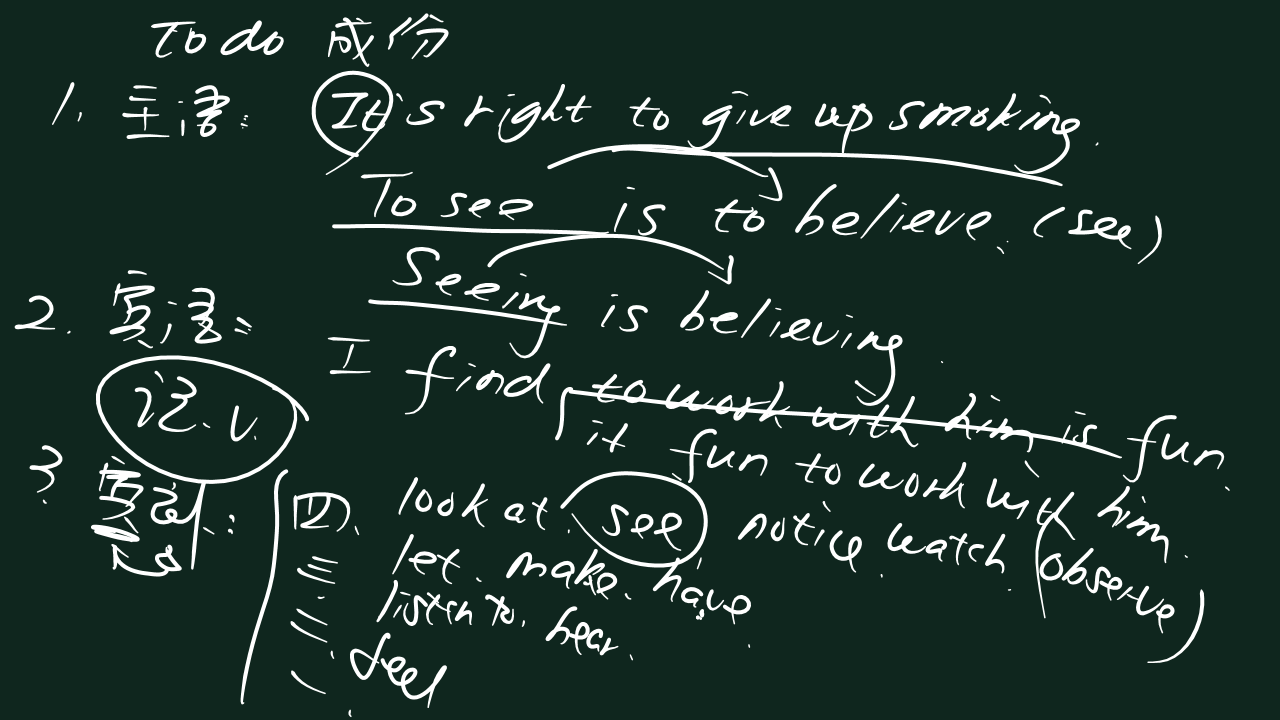 To do 成份
1. 主语: It's right to give up smoking.
To see is to believe. (see)
Seeing is believing.
2. 宾语:
I find to work with him is fun.
it fun to work with him.
记.v.
3 宾补:
四. look at. see notice watch (observe)
三 let. make. have
二. listen to. hear.
一. feel